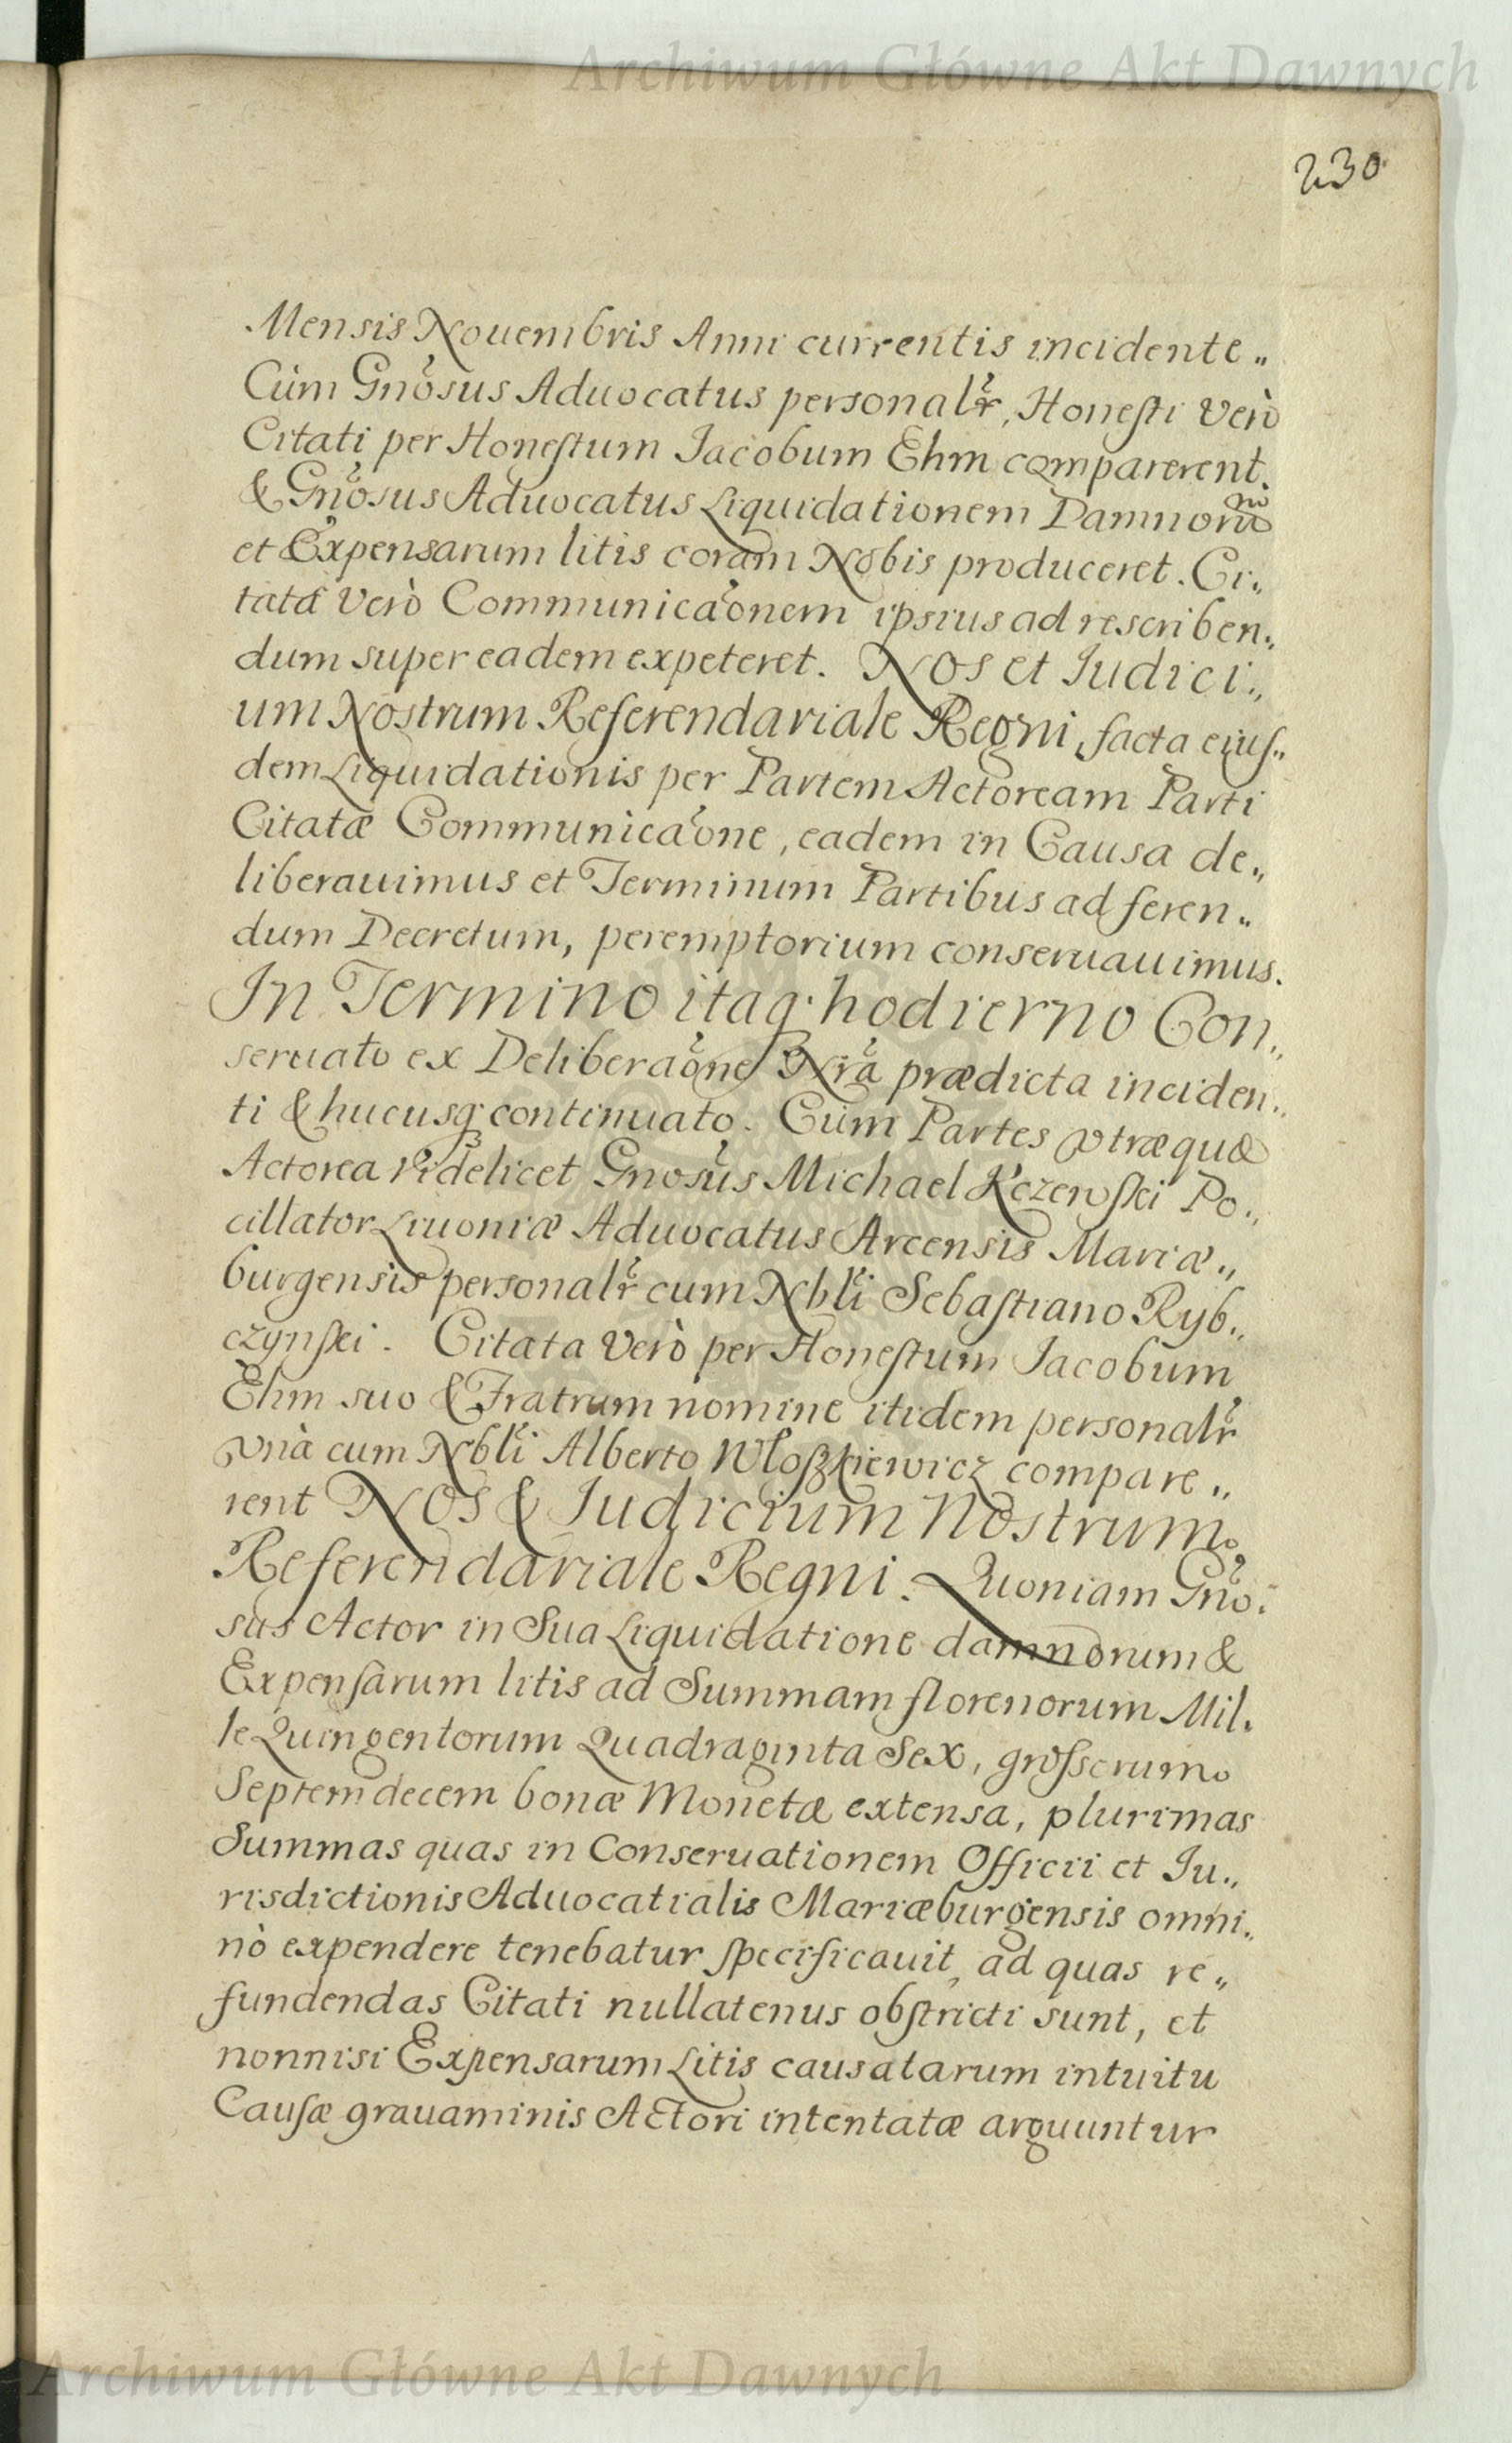 Archiwum Główne Akt Dawnych
230
Mensis Nouembris Anni currentis incidente„
Cùm Gnosus Aduocatus personalr, Honesti Verò
Citati per Honestum Jacobum Ehm comparerent.
& Gnosus Aduocatus Liquidationem Damnorũ
et Expensarum litis coram Nobis produceret. Ci„
tata Verò Communicaonem ipsius ad rescriben„
dum super eadem expeteret. Nos et Judici„
um Nostrum Referendariale Regni, facta eius„
dem Liquidationis per Partem Actoream Parti
Citatæ Communicaone, eadem in Causa de„
liberauimus et Terminum Partibus ad feren„
dum Decretum, peremptorium conseruauimus.
In Termino itaq. hodierno Con„
seruato ex Deliberaone Nra prædicta inciden„
ti & hucusq. continuato. Cùm Partes vtræque
Actorea Videlicet Gnosus Michael Kczewski Po„
cillator Liuoniæ Aduocatus Arcensis Mariæ„
burgensis personalr cum Nbli Sebastiano Ryb„
czynski. Citata Verò per Honestum Jacobum
Ehm suo & Fratrum nomine itidem personalr
vnà cum Nbli Alberto Włoszkiewicz compare„
rent Nos & Judicium Nostrum
Referendariale Regni. Quoniam Gno„
sus Actor in Sua Liquidatione damnorum &
Expensarum litis ad Summam florenorum Mil„
le Quingentorum Quadraginta Sex, grossorum
Septemdecem bonæ Monetæ extensa, plurimas
Summas quas in Conseruationem Officii et Ju„
risdictionis Aduocatialis Mariæburgensis omni„
nò expendere tenebatur specificauit, ad quas re„
fundendas Citati nullatenus obstricti sunt, et
nonnisi Expensarum Litis causatarum intuitu
Causæ grauaminis Actori intentatæ arguuntur
Archiwum Główne Akt Dawnych